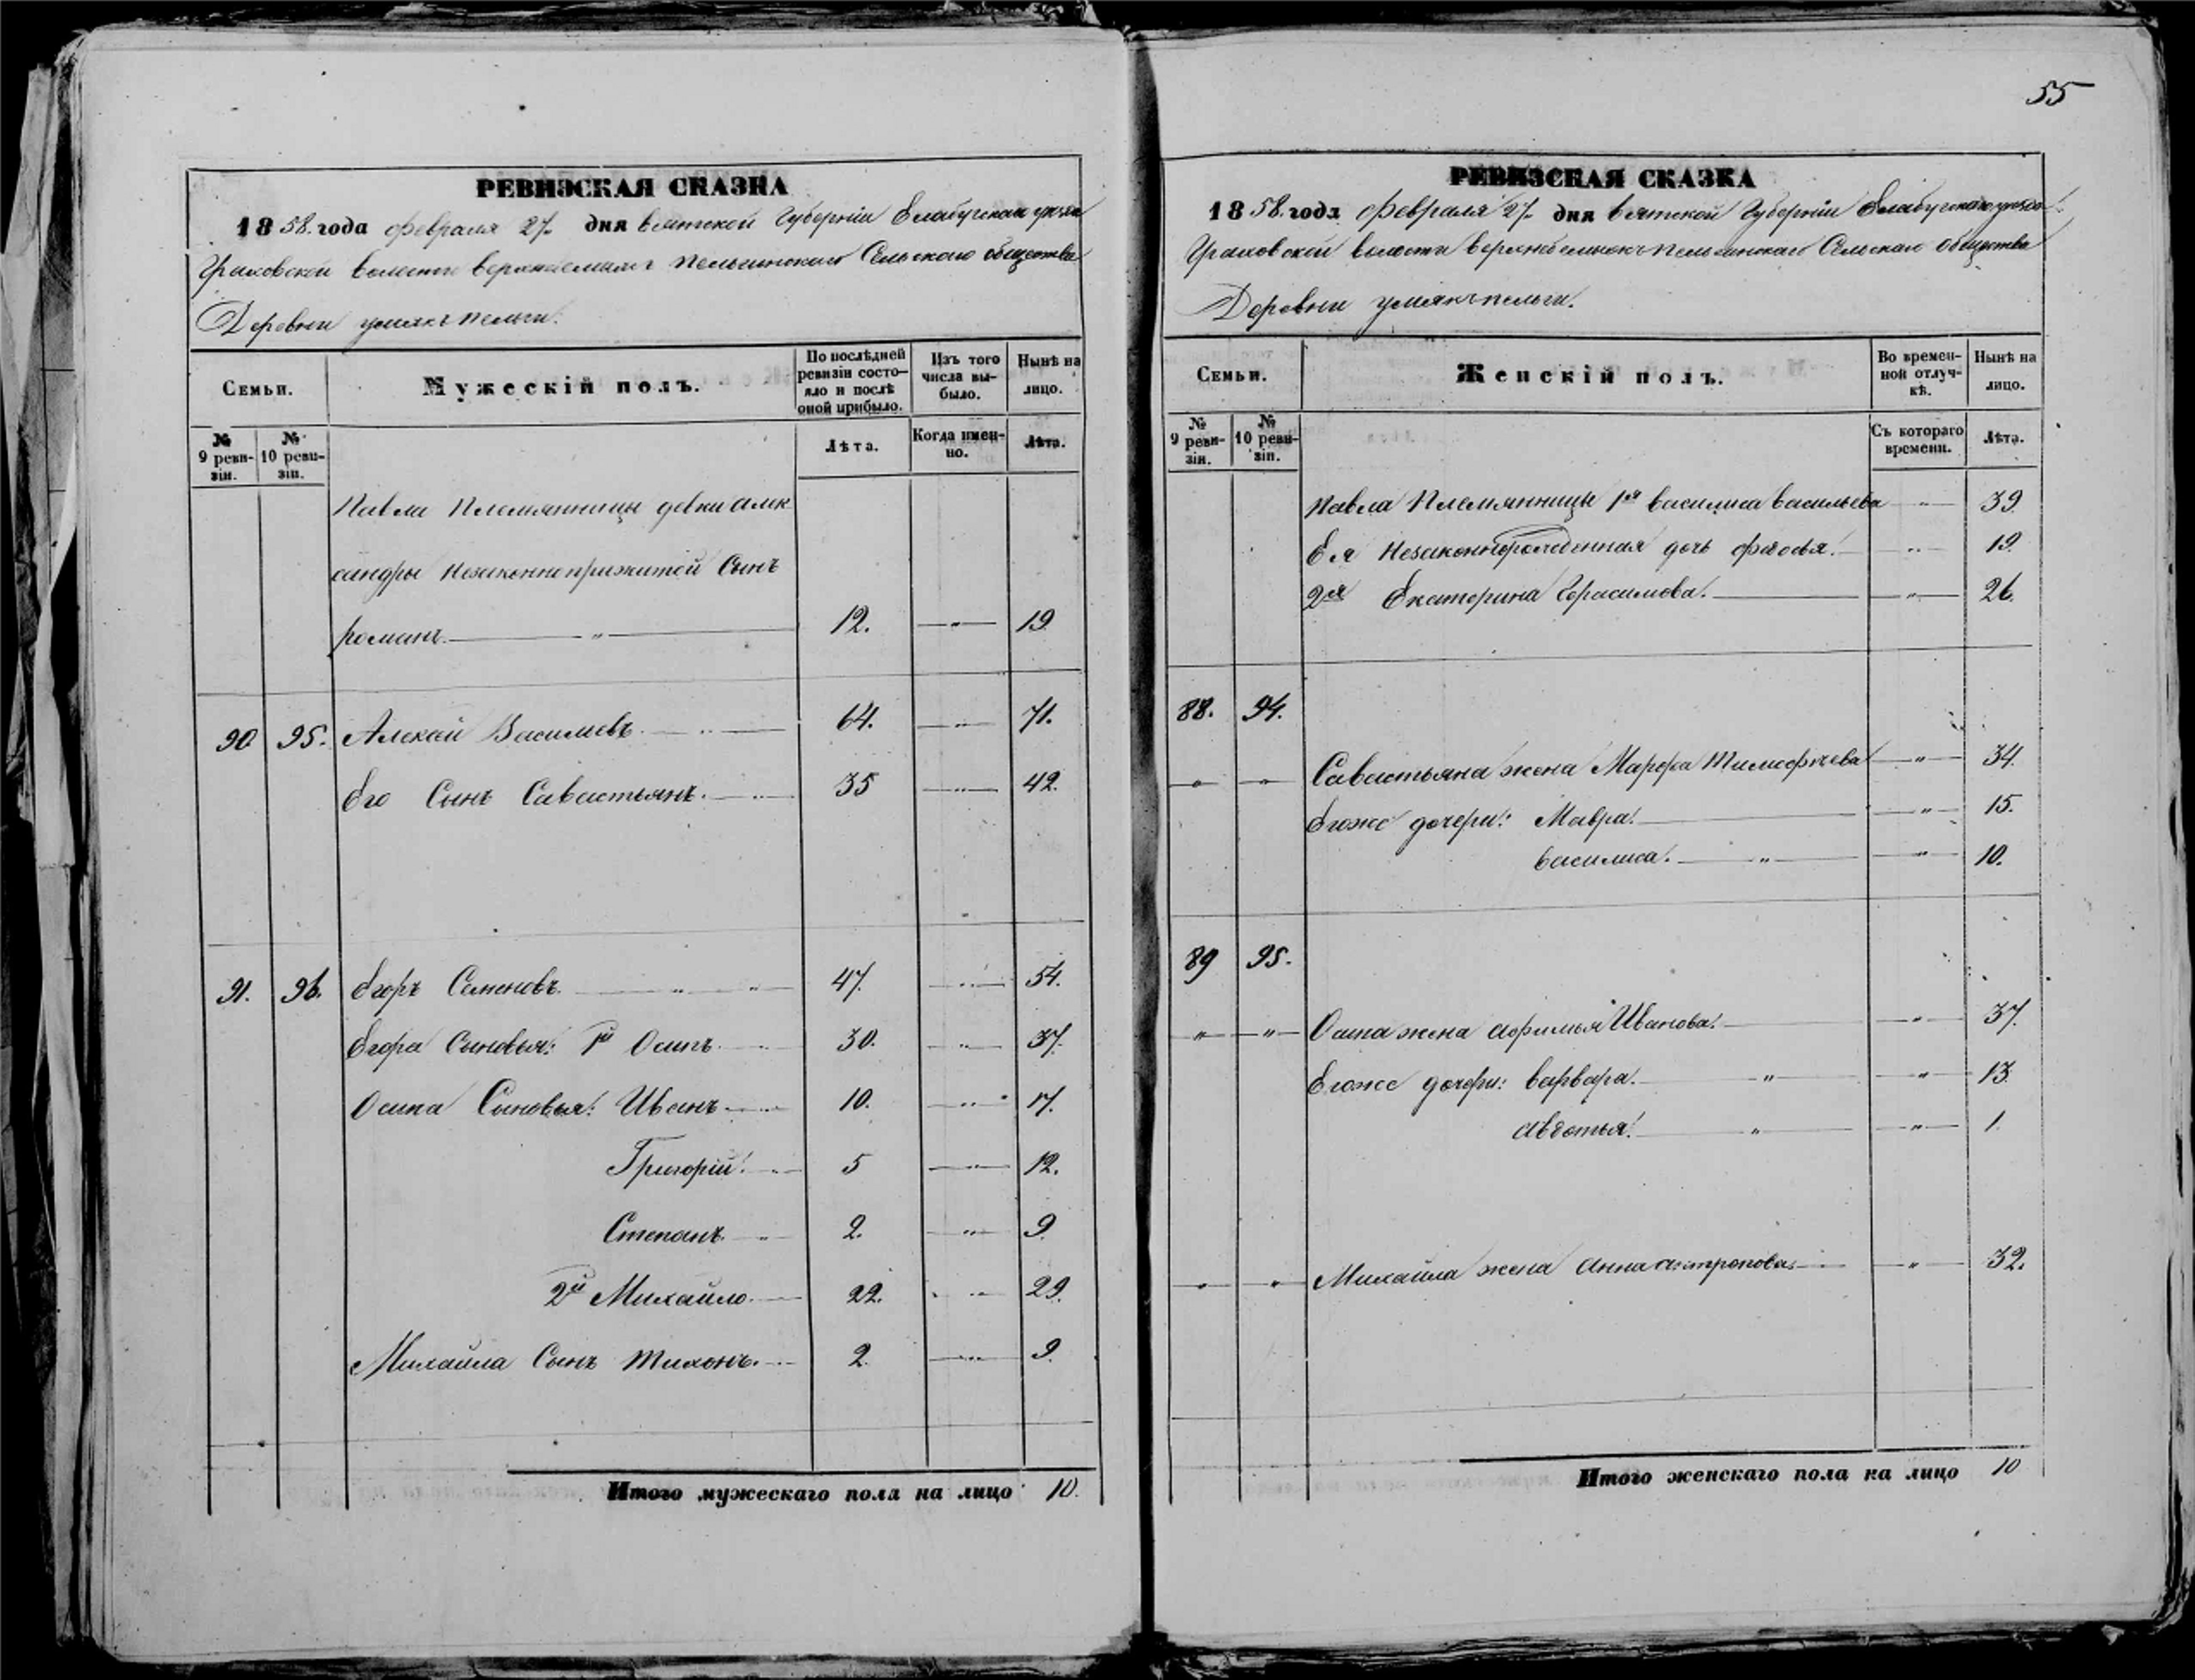 55
РЕВИЗСКАЯ СКАЗКА
1858. года февраля 27. дня вятской Губерніи Елабугскаго уезда
Граховской волости Пельгинскаго Сельскаго общества
Деревни умякъ пельги.
Семьи.
Мужескій полъ.
По послѣдней ревизіи состо-
яло и послѣ
оной прибыло.
Изъ того
числа вы-
было.
Нынѣ на
лицо.
№
9 реви-
зіи.
№
10 реви-
зіи.
Лѣта.
Когда имен-
но.
Лѣта.
Павла Племянницы девки алек
сандры незаконноприжитой Сынъ
романъ. 12. 19
90 95. Алексей Васильевъ 64. 71.
Его Сынъ Савастьянъ. 35 42.
91. 96. Егоръ Семеновъ. 47. 54.
Егора Сыновья: 1й Осипъ. 30. 37.
Осипа Сыновья: Иванъ 10. 17.
Григорій. 5 12.
Степанъ. 2. 9
2й Михайло. 22. 29.
Михайла Сынъ тихонъ. 2. 9.
Итого мужескаго пола на лицо 10.
РЕВИЗСКАЯ СКАЗКА
1858. года февраля 27. дня вятской Губерніи Елабугскаго уезда
Граховской волости Пельгинскаго Сельскаго общества
Деревни умякъ пельги.
Семьи.
Женскій полъ.
Во времен-
ной отлуч-
кѣ.
Нынѣ на
лицо.
№
9 реви-
зіи.
№
10 реви-
зіи.
Съ котораго
времени.
Лѣта.
Павла Племянницы 1я василиса васильева 39
Ея Незаконнорожденная дочь 19.
2я Екатерина Герасимова. 26.
88. 94.
Савастьяна жена Марфа тимофѣева 34.
Егоже дочери: Мавра. 15.
василиса. 10.
89 95.
Осипа жена афимья Иванова. 37.
Егоже дочери: варвара. 13
авдотья. 1.
Михайла жена анна 32.
Итого женскаго пола на лицо 10